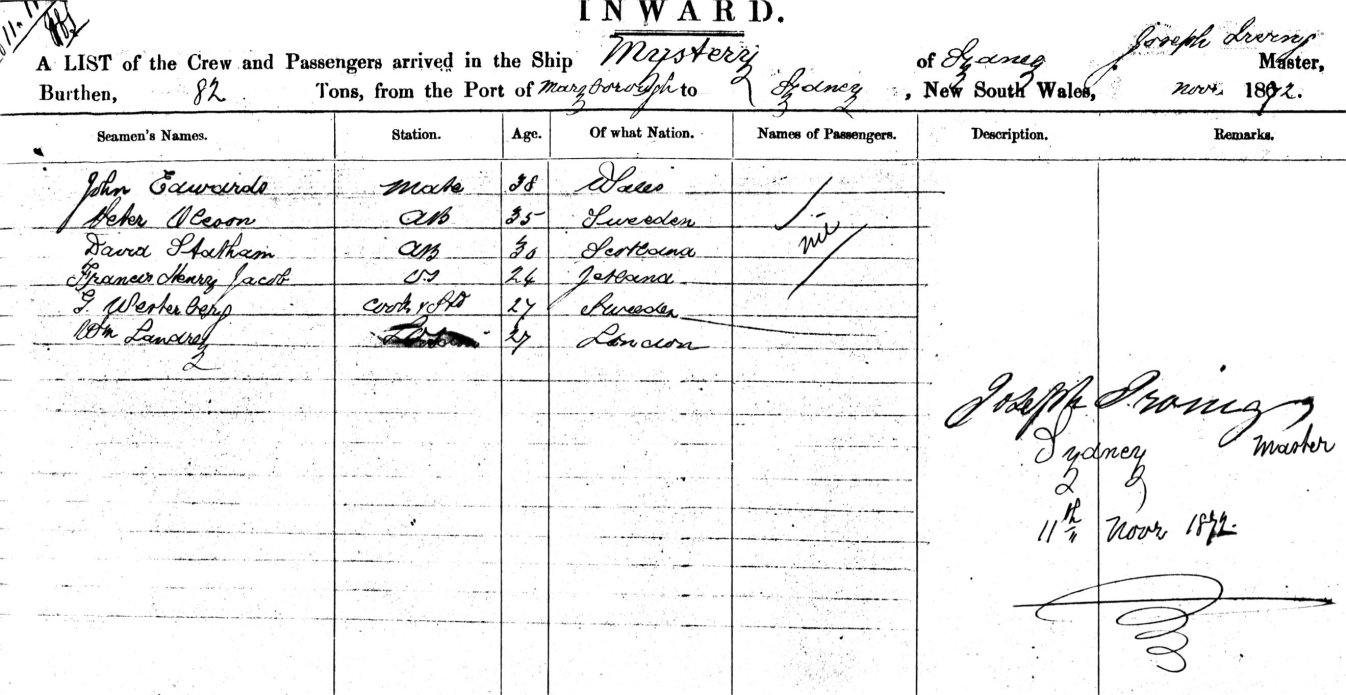 11.11
INWARD.
A LIST of the Crew and Passengers arrived in the Ship Mystery of Sydney Joseph Irving Master,
Burthen, 82 Tons, from the Port of Maryborough to Sydney, New South Wales, Novr. 1872.
Seamen's Names. Station. Age. Of what Nation. Names of Passengers. Description. Remarks.
John Edwards Mate 38 Wales
Peter Oleson AB 35 Sweeden nil
David Statham AB 30 Scotland
Francis Henry Jacob OS 26
G. Westerberg Cook & Std 27 Sweeden
Wm Landrey 27 London
Joseph Irving
Master
Sydney
11th Novr 1872.